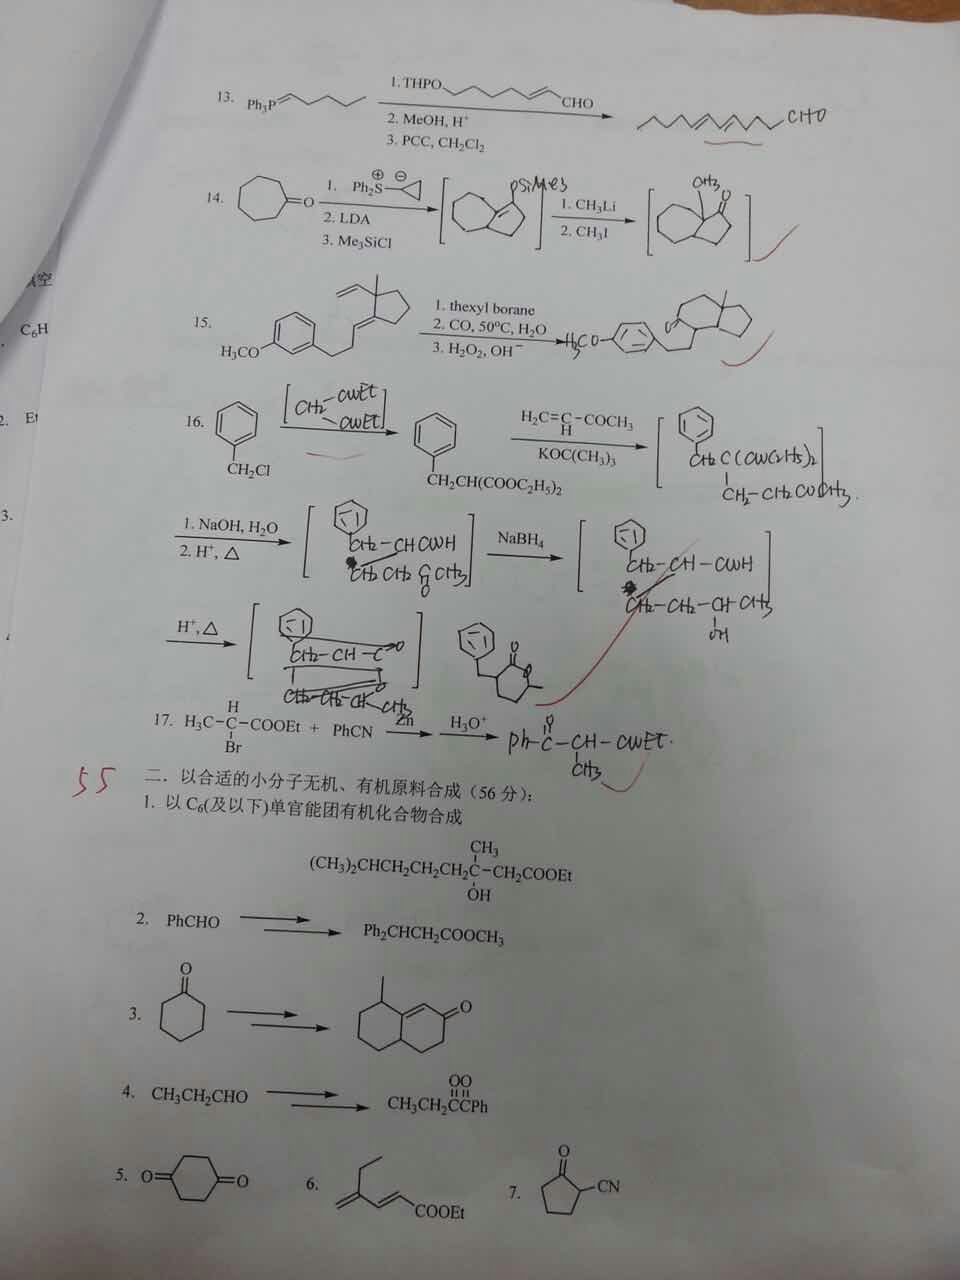 1. THPO
CHO
13. Ph₃P
2. MeOH, H⁺
3. PCC, CH₂Cl₂
CHO
14.
O
1. Ph₂S
⊕ ⊖
2. LDA
3. Me₃SiCl
OSiMe3
1. CH₃Li
2. CH₃I
CH3
O
填空
C₆H
15.
H₃CO
1. thexyl borane
2. CO, 50°C, H₂O
3. H₂O₂, OH⁻
H3CO
O
2. Et
16.
CH₂Cl
CH2
COOEt
COOEt
CH₂CH(COOC₂H₅)₂
H₂C=C-COCH₃
H
KOC(CH₃)₃
CH2C(COOC2H5)2
CH2-CH2COCH3.
3.
1. NaOH, H₂O
2. H⁺, △
CH2-CHCOOH
CH2CH2CCH3
O
NaBH₄
CH2-CH-COOH
CH2-CH2-CH CH3
OH
H⁺,△
CH2-CH-C=O
CH2-CH2-CH-CH3
O
O
17. H₃C-C-COOEt + PhCN
H
Br
Zn
H₃O⁺
Ph-C-CH-COOEt.
O
CH3
55
二. 以合适的小分子无机、有机原料合成（56 分）：
1. 以 C₆(及以下)单官能团有机化合物合成
CH₃
(CH₃)₂CHCH₂CH₂CH₂C-CH₂COOEt
OH
2. PhCHO
Ph₂CHCH₂COOCH₃
3.
O
O
4. CH₃CH₂CHO
OO
CH₃CH₂CCPh
5. O= =O
6.
COOEt
7.
O
CN